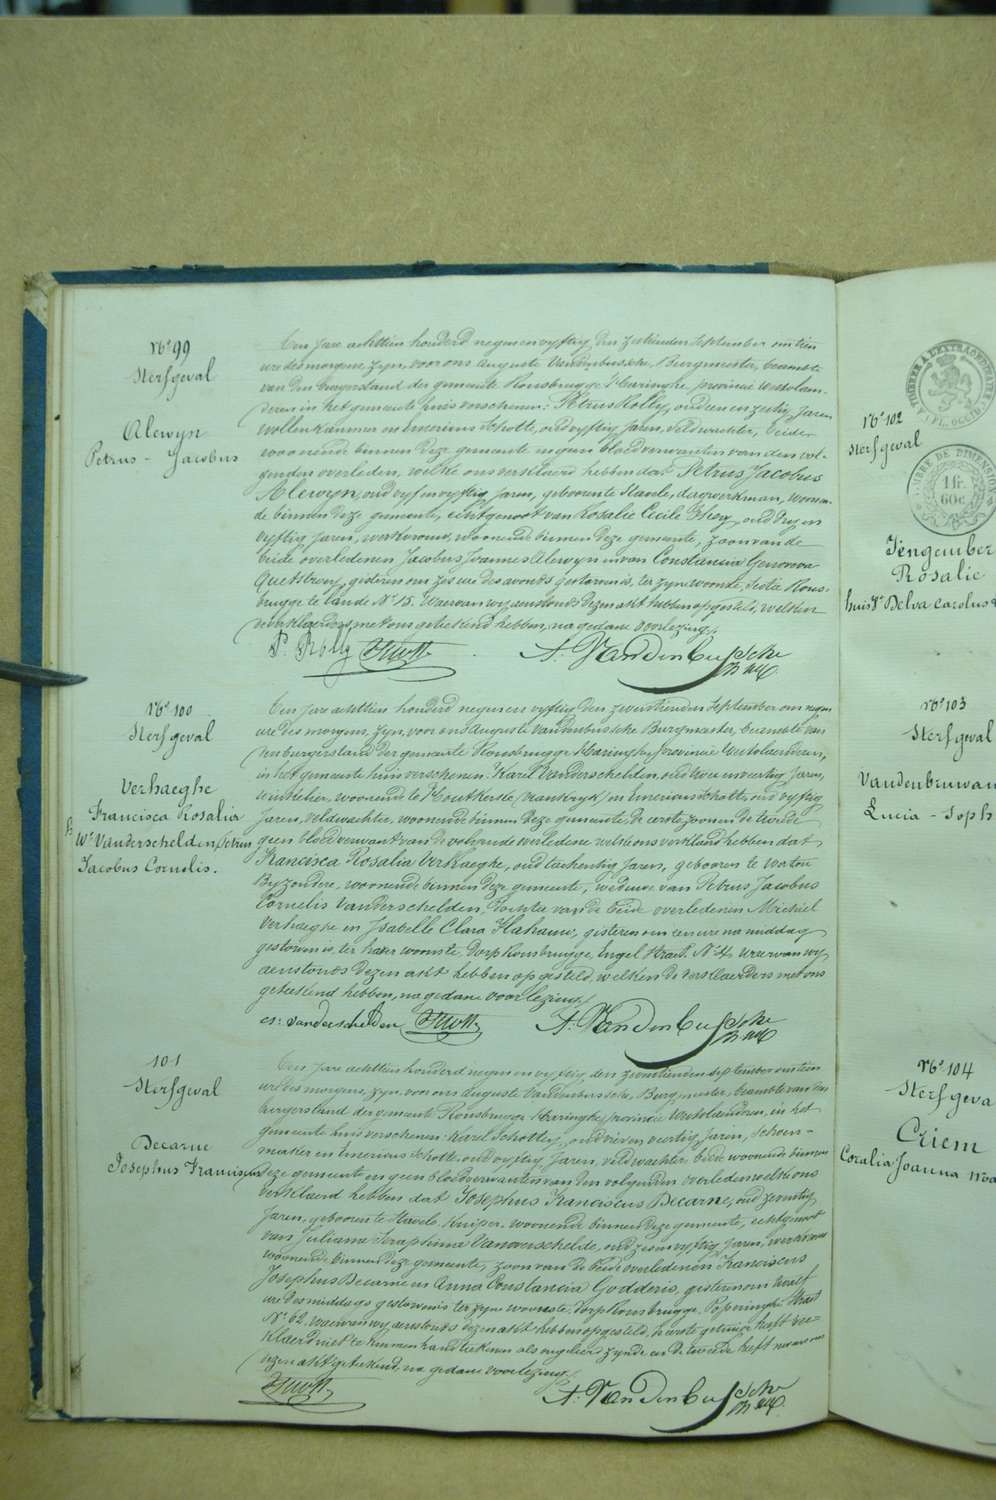 No 99
Sterfgeval
Alewyn
Petrus - Jacobus
Ten jare achttien honderd negen en vyftig, den zestienden September om tien
ure des morgens, zyn, voor ons Auguste Vandenbussche, Burgmeester, beambte
van den burgerstand der gemeente Rousbrugge Haringhe, provincie Westvlaan-
deren in het gemeente huis verschenen: Petrus Rolly, oud een en zestig Jaren,
wollekammer en Emericus Schotte, oud vyftig Jaren, veldwachter, beiden
woonende binnen deze gemeente en geen bloedverwanten van den vol-
genden overleden, welke ons verklaard hebben dat Petrus Jacobus
Alewyn, oud vyf en vyftig jaren, geboren te Stavele, dagwerkman, woonen-
de binnen deze gemeente, echtgenoot van Rosalie Cecile Il oud dry en
vyftig Jaren, werkvrouw, woonende binnen deze gemeente, zoon van de
beide overledenen Jacobus Joannes Alewyn en van Constancia Genoveva
Quetstroey, gisteren om zes ure des avonds gestorven is, ter zyne woonste, Sectie Rous-
brugge te lande No 15. Waervan wy aenstonds dezen akt hebben opgesteld, welken
de verklaerders met ons geteekend hebben, na gedane voorlezing.
P. Rolly Schotte A. Vandenbussche
No 100
Sterfgeval
Verhaeghe
Francisca Rosalia
We Vanderschelden, Petrus
Jacobus Cornelis.
Ten jare achttien honderd negen en vyftig den zeventienden September om negen
ure des morgens, zyn, voor ons Auguste Vandenbussche Burgmeester, beambte van
den burgerstand der gemeente Rousbrugge Haringhe, provincie Westvlaenderen,
in het gemeente huis verschenen: Karel Vanderschelden, oud twee en veertig Jaren,
winkelier, woonende te Houtkerke (Vrankryk) en Emericus Schotte, oud vyftig
Jaren, veldwachter, woonende binnen deze gemeente, de eerste zoon en de tweede
geen bloedverwant van de volgende overledene welke ons verklaerd hebben dat
Francisca Rosalia Verhaeghe, oud tachentig Jaren, geboren te Watou
Byzondere, woonende binnen deze gemeente, weduwe van Petrus Jacobus
Cornelis Vanderschelden, dochter van de beide overledenen Michiel
Verhaeghe en Isabelle Clara Flahauw, gisteren om een ure na middag
gestorven is, ter harer woonste, Dorp Rousbrugge, Engel Straet No 4. Waervan wy
aenstonds dezen akt hebben opgesteld, welken de verklaerders met ons
geteekend hebben, na gedane voorlezing.
Vanderschelden Schotte A. Vandenbussche
101
Sterfgeval
Decarne
Josephus Franciscus
Ten jare achttien honderd negen en vyftig, den zeventienden September om tien
ure des morgens, zyn, voor ons Auguste Vandenbussche, Burgmeester, beambte van den
burgerstand der gemeente Rousbrugge Haringhe, provincie Westvlaenderen, in het
gemeente huis verschenen: Karel Schottey, oud vier en veertig Jaren, schoen-
maker en Emericus Schotte, oud vyftig Jaren, veldwachter, beide woonende binnen
deze gemeente en geen bloedverwanten van den volgenden overleden welke ons
verklaerd hebben dat Josephus Franciscus Decarne, oud zeventig
Jaren, geboren te Stavele, Kuiper, woonende binnen deze gemeente, echtgenoot
van Juliana Seraphinna Vanoverschelde, oud zes en vyftig Jaren, werkvrouw
woonende binnen deze gemeente, zoon van de beide overledenen Franciscus
Josephus Decarne en Anna Constancia Godderis, gisteren om twalf
ure des middags gestorven is ter zyne woonste, Dorp Rousbrugge, Poperinghe Straet
No 62, waervan wy aenstonds dezen akt hebben opgesteld, de eerste getuige heeft ver-
klaerd niet te kunnen handteekenen als ongeleerd zynde en de tweede heeft nevens ons
dezen akt geteekend, na gedane voorlezing.
Schotte A. Vandenbussche
No 102
Sterfgeval
TIMBRE DE DIMENSION
1 fr.
60c.
Tengember
Rosalie
huisv. Delva Carolus
No 103
Sterfgeval
Vandenbruwan
Lucia - Soph
No 104
Sterfgeva
Criem
Coralia Joanna